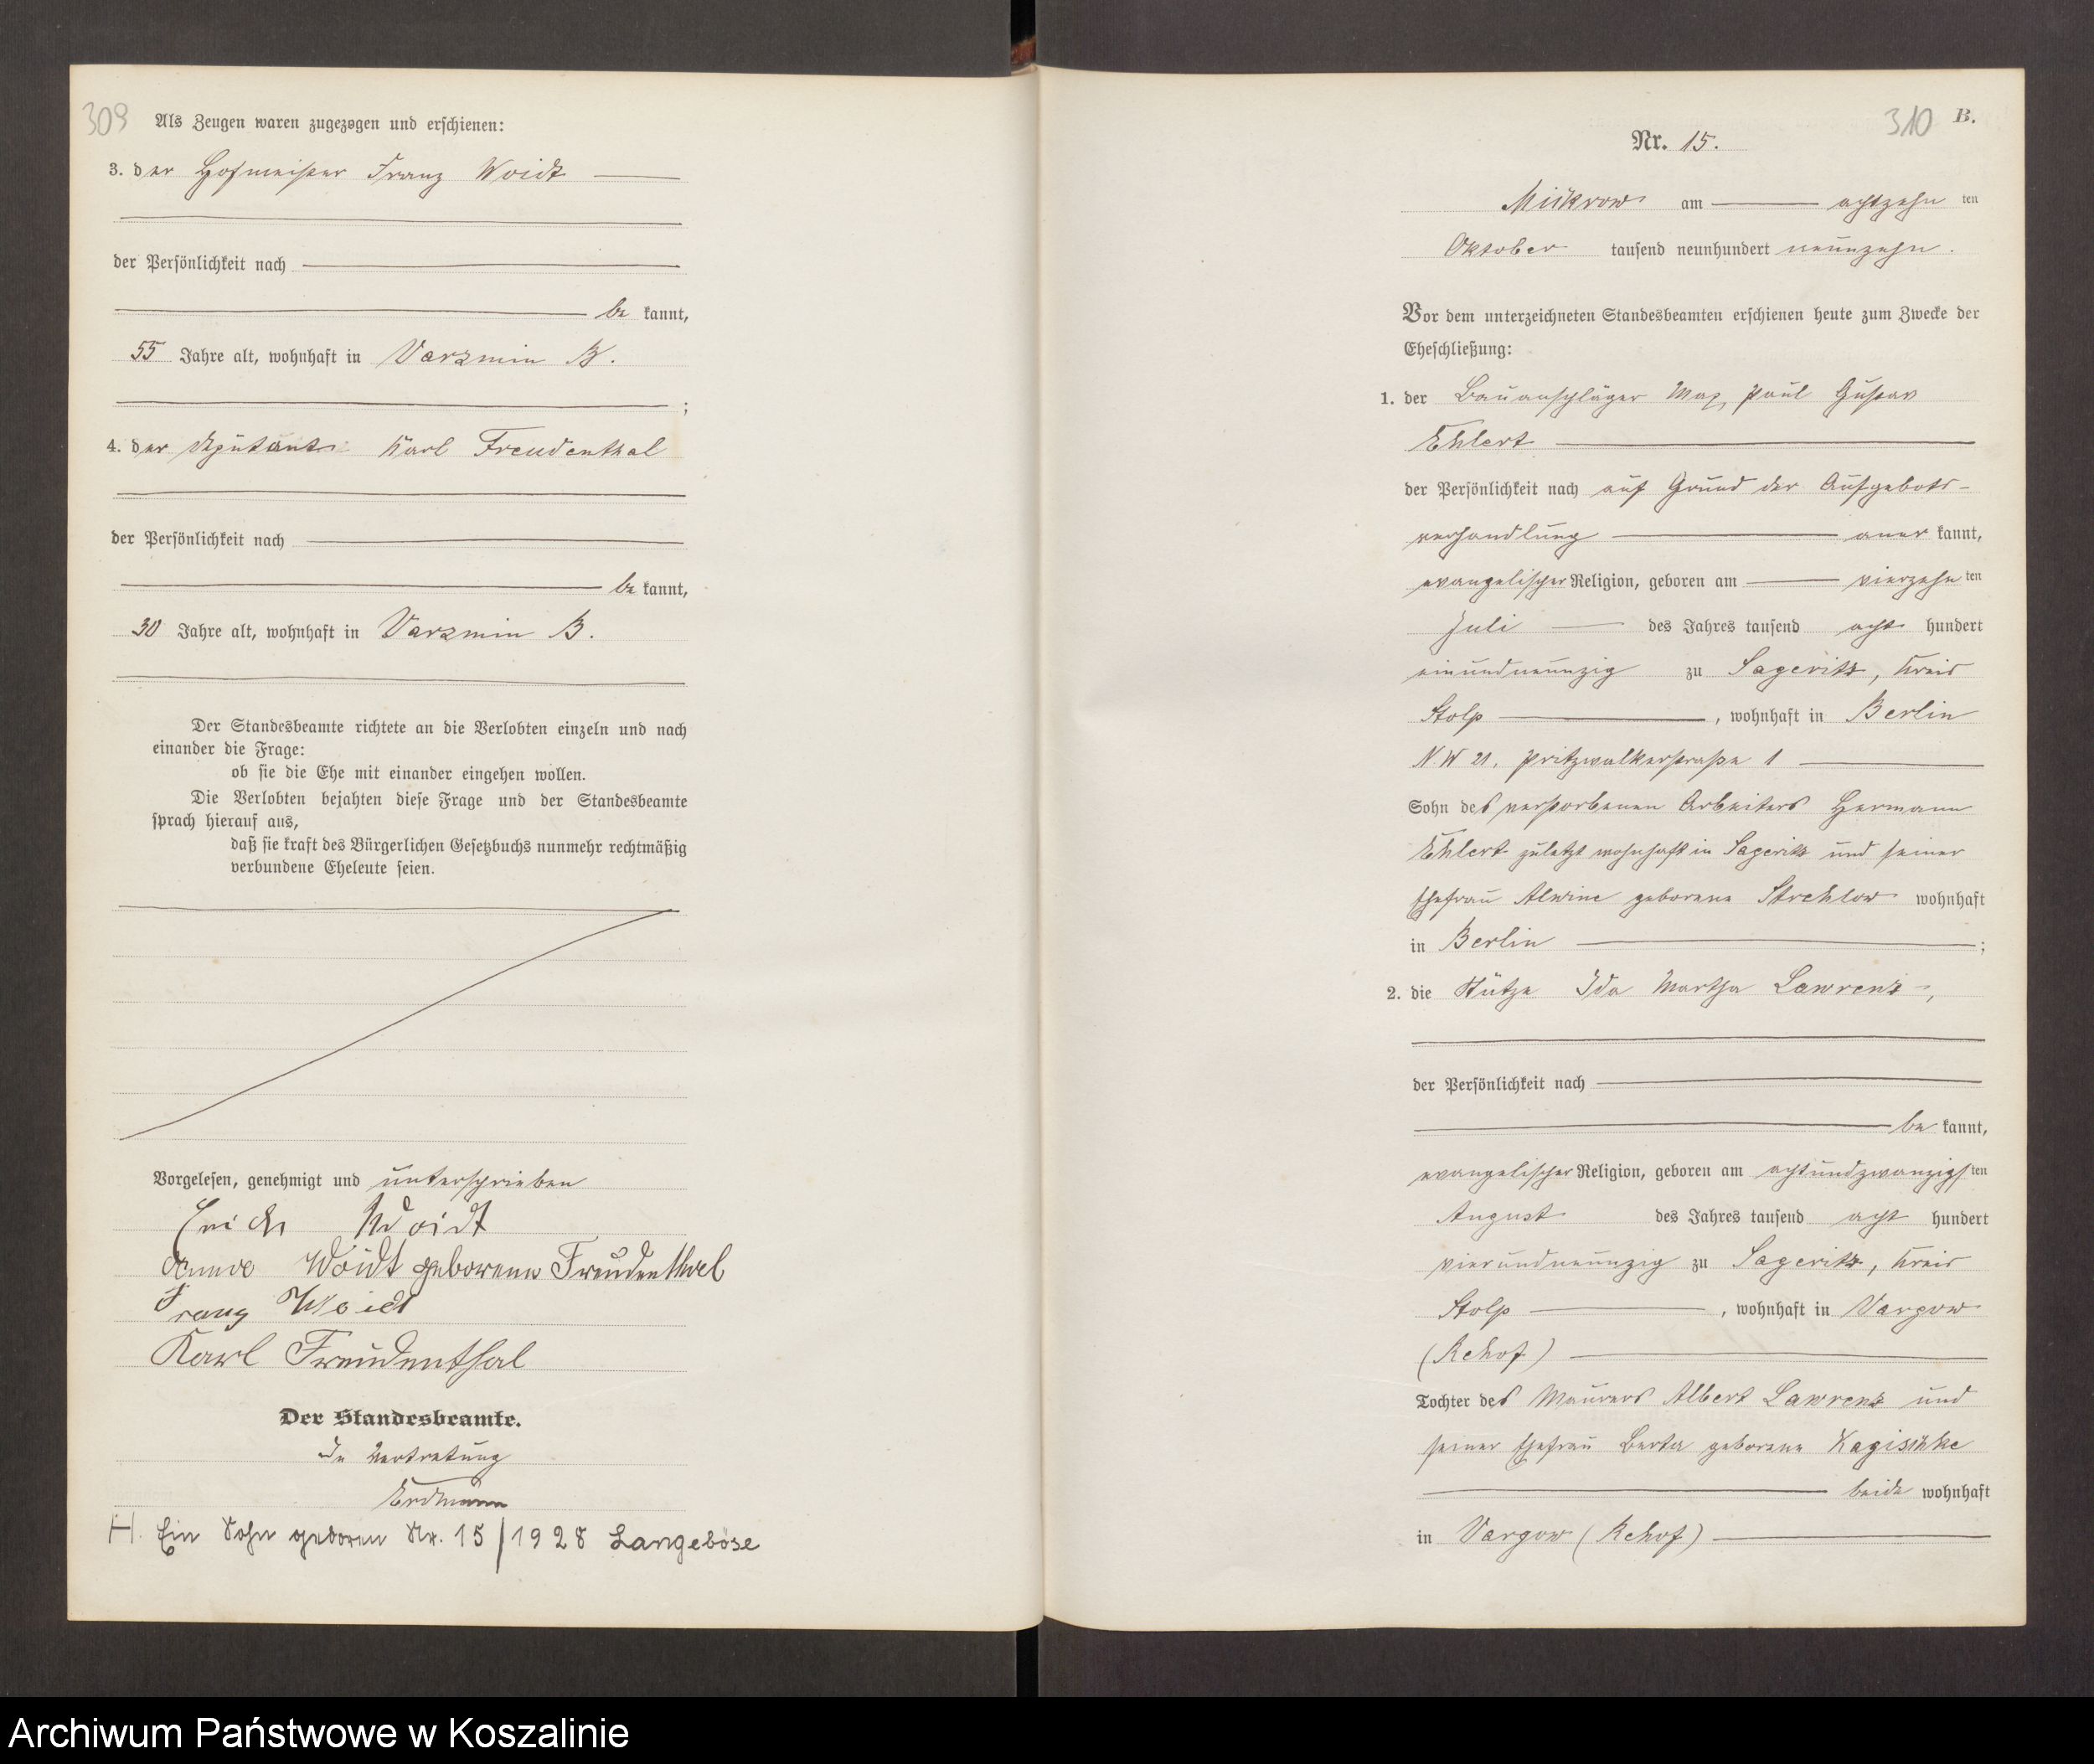 309
Als Zeugen waren zugezogen und erschienen:
3. der Hofmeister Franz Woidt
der Persönlichkeit nach
be kannt,
55 Jahre alt, wohnhaft in Varzmin B.
;
4. der Deputant Karl Freudenthal
der Persönlichkeit nach
be kannt,
30 Jahre alt, wohnhaft in Varzmin B.
Der Standesbeamte richtete an die Verlobten einzeln und nach
einander die Frage:
ob sie die Ehe mit einander eingehen wollen.
Die Verlobten bejahten diese Frage und der Standesbeamte
sprach hierauf aus,
daß sie kraft des Bürgerlichen Gesetzbuchs nunmehr rechtmäßig
verbundene Eheleute seien.
Vorgelesen, genehmigt und unterschrieben
Erich Woidt
Woidt geborene Freudenthal
Franz Woidt
Karl Freudenthal
Der Standesbeamte.
In Vertretung
Erdmann
H. Ein Sohn geboren Nr. 15/1928 Langeböse
310 B.
Nr. 15.
Mickrow am achtzehn ten
Oktober tausend neunhundert neunzehn.
Vor dem unterzeichneten Standesbeamten erschienen heute zum Zwecke der
Eheschließung:
1. der Bauanschläger Max Paul Gustav
Ehlert
der Persönlichkeit nach auf Grund der Aufgebots-
verhandlung aner kannt,
evangelischer Religion, geboren am vierzehn ten
Juli des Jahres tausend acht hundert
einundneunzig zu Sageritz, Kreis
Stolp, wohnhaft in Berlin
N.W 21, Pritzwalkerstraße 1
Sohn des verstorbenen Arbeiters Hermann
Ehlert zuletzt wohnhaft in Sageritz und seiner
Ehefrau Alwine geborene Strehlow wohnhaft
in Berlin ;
2. die Stütze Ida Martha Lawrenz,
der Persönlichkeit nach
be kannt,
evangelischer Religion, geboren am achtundzwanzigs ten
August des Jahres tausend acht hundert
vierundneunzig zu Sageritz, Kreis
Stolp, wohnhaft in Vargow
(Rehof)
Tochter des Maurers Albert Lawrenz und
seiner Ehefrau Berta geborene
beide wohnhaft
in Vargow (Rehof)
Archiwum Państwowe w Koszalinie